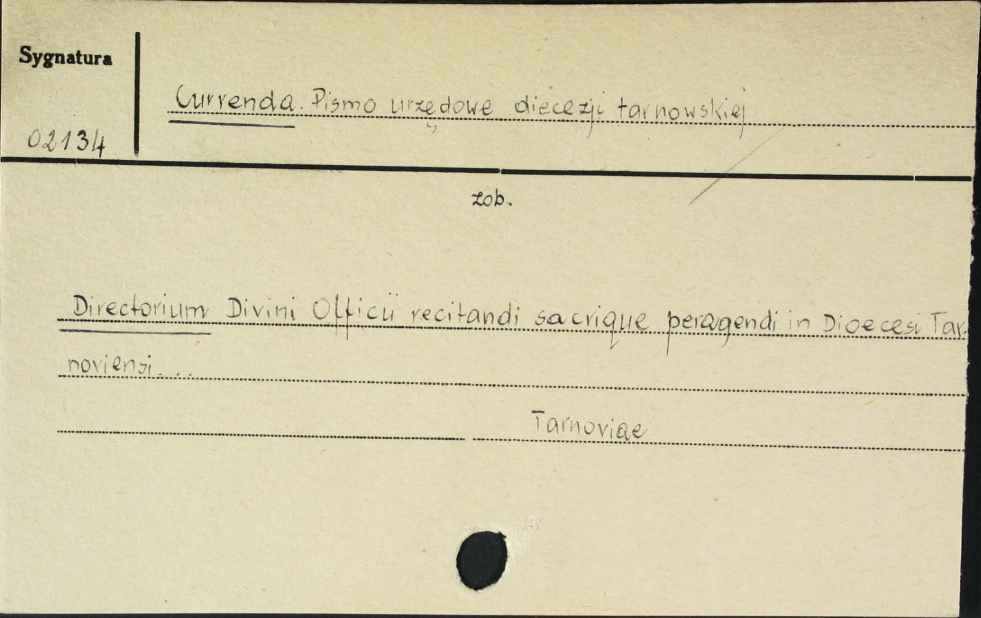 Sygnatura
Currenda. Pismo urzędowe diecezji tarnowskiej
02134
zob.
Directorium Divini Officii recitandi sacrique peragendi in Dioecesi Tar-
noviensi...
Tarnoviae